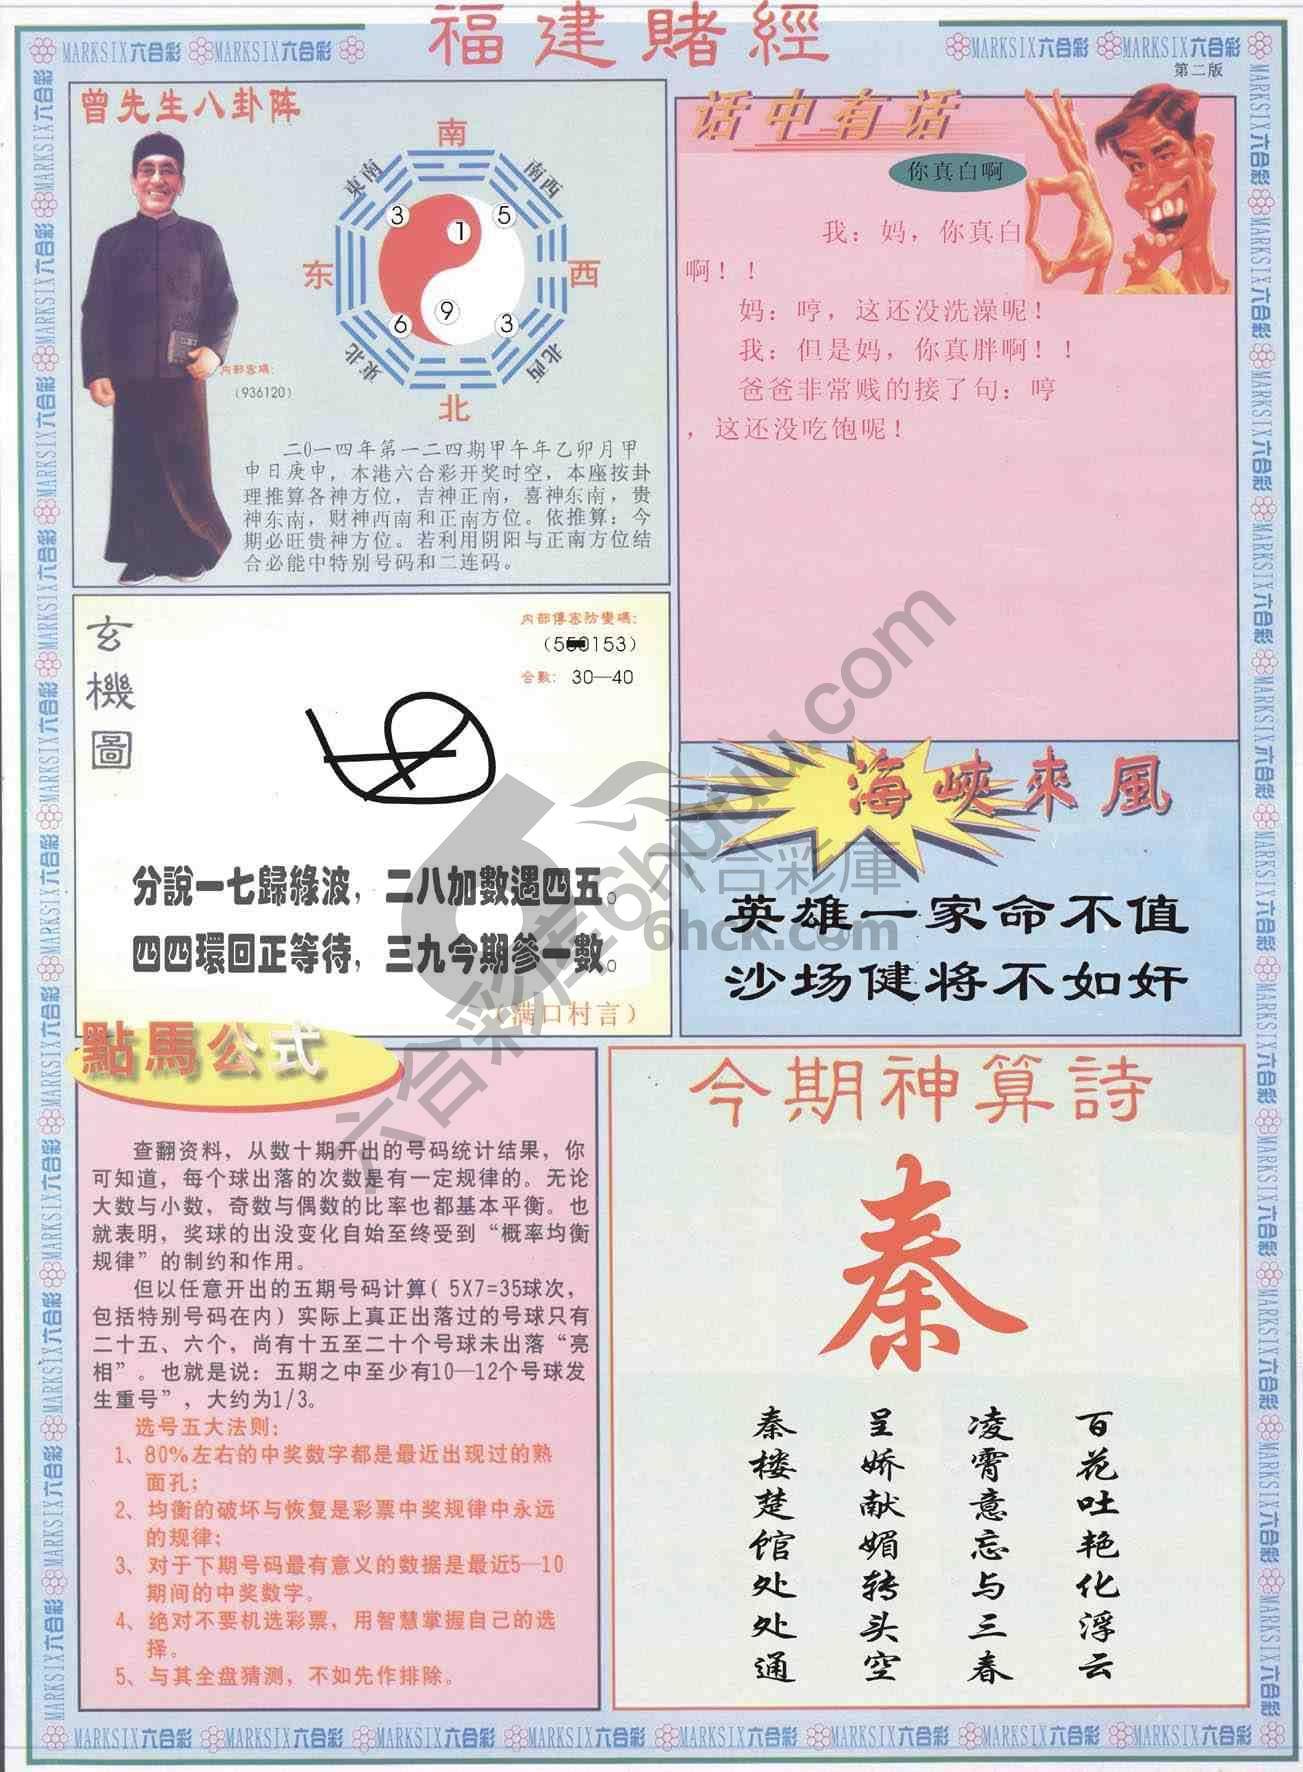 福建賭經
MARKSIX六合彩 MARKSIX六合彩
MARKSIX六合彩 MARKSIX六合彩
第二版
曾先生八卦阵
南
東南
南西
3
1
5
东
西
6
9
3
東北
北西
北
内部密碼:
(936120)
二0一四年第一二四期甲午年乙卯月甲
申日庚申,本港六合彩开奖时空,本座按卦
理推算各神方位,吉神正南,喜神东南,贵
神东南,财神西南和正南方位。依推算:今
期必旺贵神方位。若利用阴阳与正南方位结
合必能中特别号码和二连码。
话中有话
你真白啊
我:妈,你真白
啊!!
妈:哼,这还没洗澡呢!
我:但是妈,你真胖啊!!
爸爸非常贱的接了句:哼
,这还没吃饱呢!
玄機圖
内部傳密防變碼:
(550153)
合數: 30—40
分說一七歸綠波,二八加數遇四五。
四四環回正等待,三九今期參一數。
(满口村言)
海峽來風
英雄一家命不值
沙场健将不如奸
點馬公式
查翻资料,从数十期开出的号码统计结果,你
可知道,每个球出落的次数是有一定规律的。无论
大数与小数,奇数与偶数的比率也都基本平衡。也
就表明,奖球的出没变化自始至终受到“概率均衡
规律”的制约和作用。
但以任意开出的五期号码计算(5X7=35球次,
包括特别号码在内)实际上真正出落过的号球只有
二十五、六个,尚有十五至二十个号球未出落“亮
相”。也就是说:五期之中至少有10—12个号球发
生重号”,大约为1/3。
选号五大法则:
1、80%左右的中奖数字都是最近出现过的熟
面孔;
2、均衡的破坏与恢复是彩票中奖规律中永远
的规律;
3、对于下期号码最有意义的数据是最近5—10
期间的中奖数字。
4、绝对不要机选彩票,用智慧掌握自己的选
择。
5、与其全盘猜测,不如先作排除。
今期神算詩
秦
百花吐艳化浮云
凌霄意忘与三春
呈娇献媚转头空
秦楼楚馆处处通
六合彩库6huuu.com
六合彩庫
6hck.com
MARKSIX六合彩 MARKSIX六合彩 MARKSIX六合彩 MARKSIX六合彩 MARKSIX六合彩 MARKSIX六合彩 MARKSIX六合彩 MARKSIX六合彩